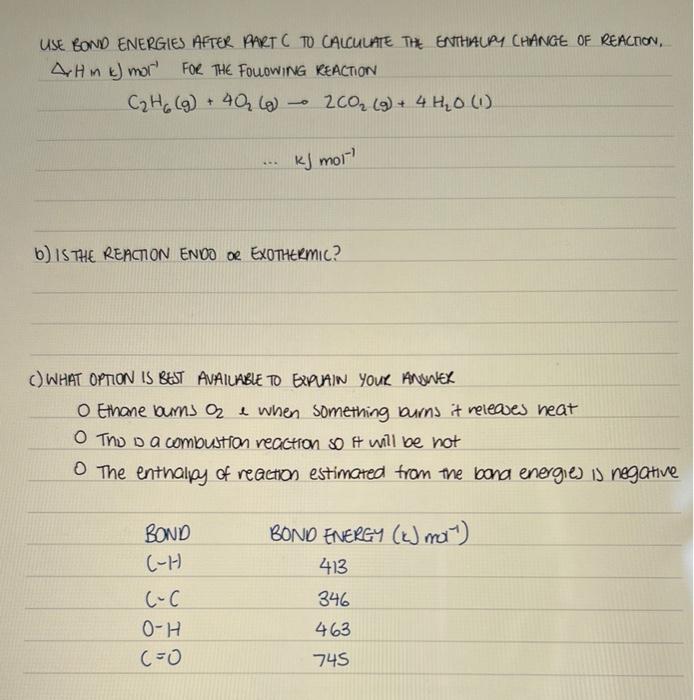 USE BOND ENERGIES AFTER PART C TO CALCULATE THE ENTHALPY CHANGE OF REACTION,
ΔrH in kJ mol⁻¹ FOR THE FOLLOWING REACTION
C₂H₆ (g) + 4O₂ (g) → 2CO₂ (g) + 4H₂O (l)
... kJ mol⁻¹
b) IS THE REACTION ENDO OR EXOTHERMIC?
c) WHAT OPTION IS BEST AVAILABLE TO EXPLAIN YOUR ANSWER
O Ethane burns O₂ & when something burns it releases heat
O This is a combustion reaction so it will be hot
O The enthalpy of reaction estimated from the bond energies is negative
BOND BOND ENERGY (kJ mol⁻¹)
C-H 413
C-C 346
O-H 463
C=O 745